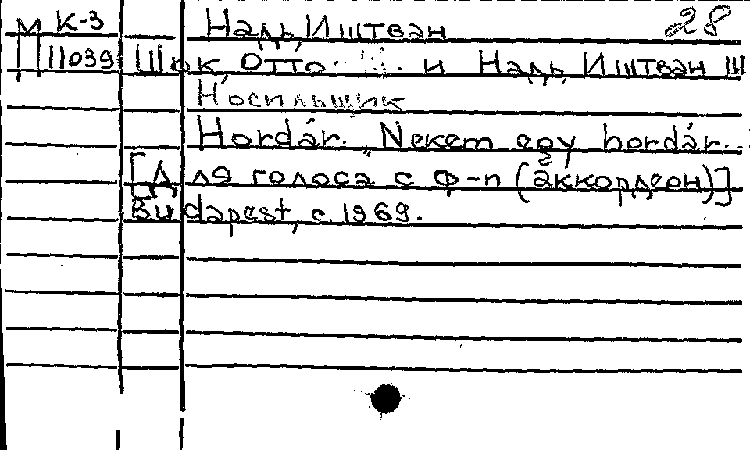 М К-3 Надь, Иштван 28
П 11039 Шок, Отто и Надь, Иштван Ш
Носильщик
Hordár. „Nekem egy hordár..
[Для голоса с ф-п (аккордеон)]
Budapest, c. 1969.